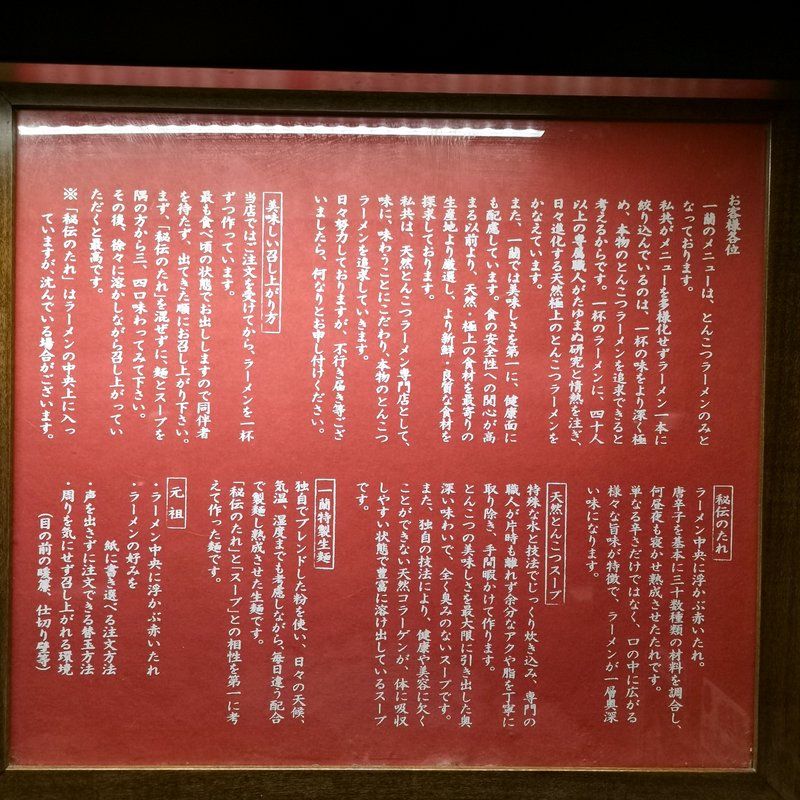 お客様各位
一蘭のメニューは、とんこつラーメンのみと
なっております。
私共がメニューを多様化せずラーメン一本に
絞り込んでいるのは、一杯の味をより深く極
め、本物のとんこつラーメンを追求できると
考えるからです。一杯のラーメンに、四十人
以上の専属職人がたゆまぬ研究と情熱を注ぎ、
日々進化する天然極上のとんこつラーメンを
かなえています。
また、一蘭では美味しさを第一に、健康面に
も配慮しています。食の安全性への関心が高
まる以前より、天然・極上の食材を最寄りの
生産地より厳選し、より新鮮・良質な食材を
探求しております。
私共は、天然とんこつラーメン専門店として、
味に、味わうことにこだわり、本物のとんこつ
ラーメンを追求していきます。
日々努力しておりますが、不行き届き等ござ
いましたら、何なりとお申し付けください。
美味しい召し上がり方
当店ではご注文を受けてから、ラーメンを一杯
ずつ作っています。
最も食べ頃の状態でお出ししますので同伴者
を待たず、出てきた順にお召し上がり下さい。
まず、「秘伝のたれ」を混ぜずに、麺とスープを
隅の方から三、四口味わってみて下さい。
その後、徐々に溶かしながら召し上がってい
ただくと最高です。
※「秘伝のたれ」はラーメンの中央上に入っ
ていますが、沈んでいる場合がございます。
秘伝のたれ
ラーメン中央に浮かぶ赤いたれ。
唐辛子を基本に三十数種類の材料を調合し、
何昼夜も寝かせ熟成させたたれです。
単なる辛さだけではなく、口の中に広がる
様々な旨味が特徴で、ラーメンが一層奥深
い味になります。
天然とんこつスープ
特殊な水と技法でじっくり炊き込み、専門の
職人が片時も離れず余分なアクや脂を丁寧に
取り除き、手間暇かけて作ります。
とんこつの美味しさを最大限に引き出した奥
深い味わいで、全く臭みのないスープです。
また、独自の技法により、健康や美容に欠く
ことができない天然コラーゲンが、体に吸収
しやすい状態で豊富に溶け出しているスープ
です。
一蘭特製生麺
独自でブレンドした粉を使い、日々の天候、
気温、湿度までも考慮しながら、毎日違う配合
で製麺し熟成させた生麺です。
「秘伝のたれ」と「スープ」との相性を第一に考
えて作った麺です。
元祖
・ラーメン中央に浮かぶ赤いたれ
・ラーメンの好みを
紙に書き選べる注文方法
・声を出さずに注文できる替玉方法
・周りを気にせず召し上がれる環境
(目の前の暖簾、仕切り壁等)